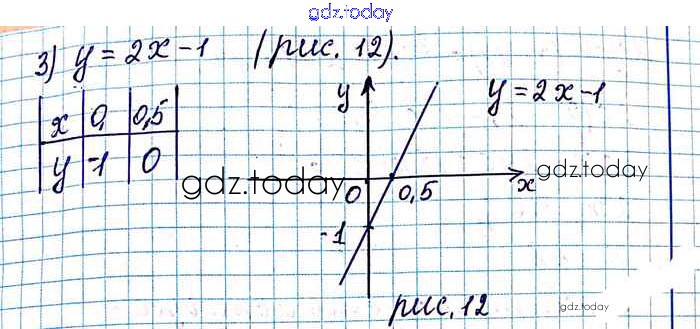 gdz.today
3) y = 2x - 1 (рис. 12).
x 0, 0,5
y -1 0
y
y = 2x - 1
gdz.today
gdz.today
x
0 0,5
-1
рис. 12
gdz.today